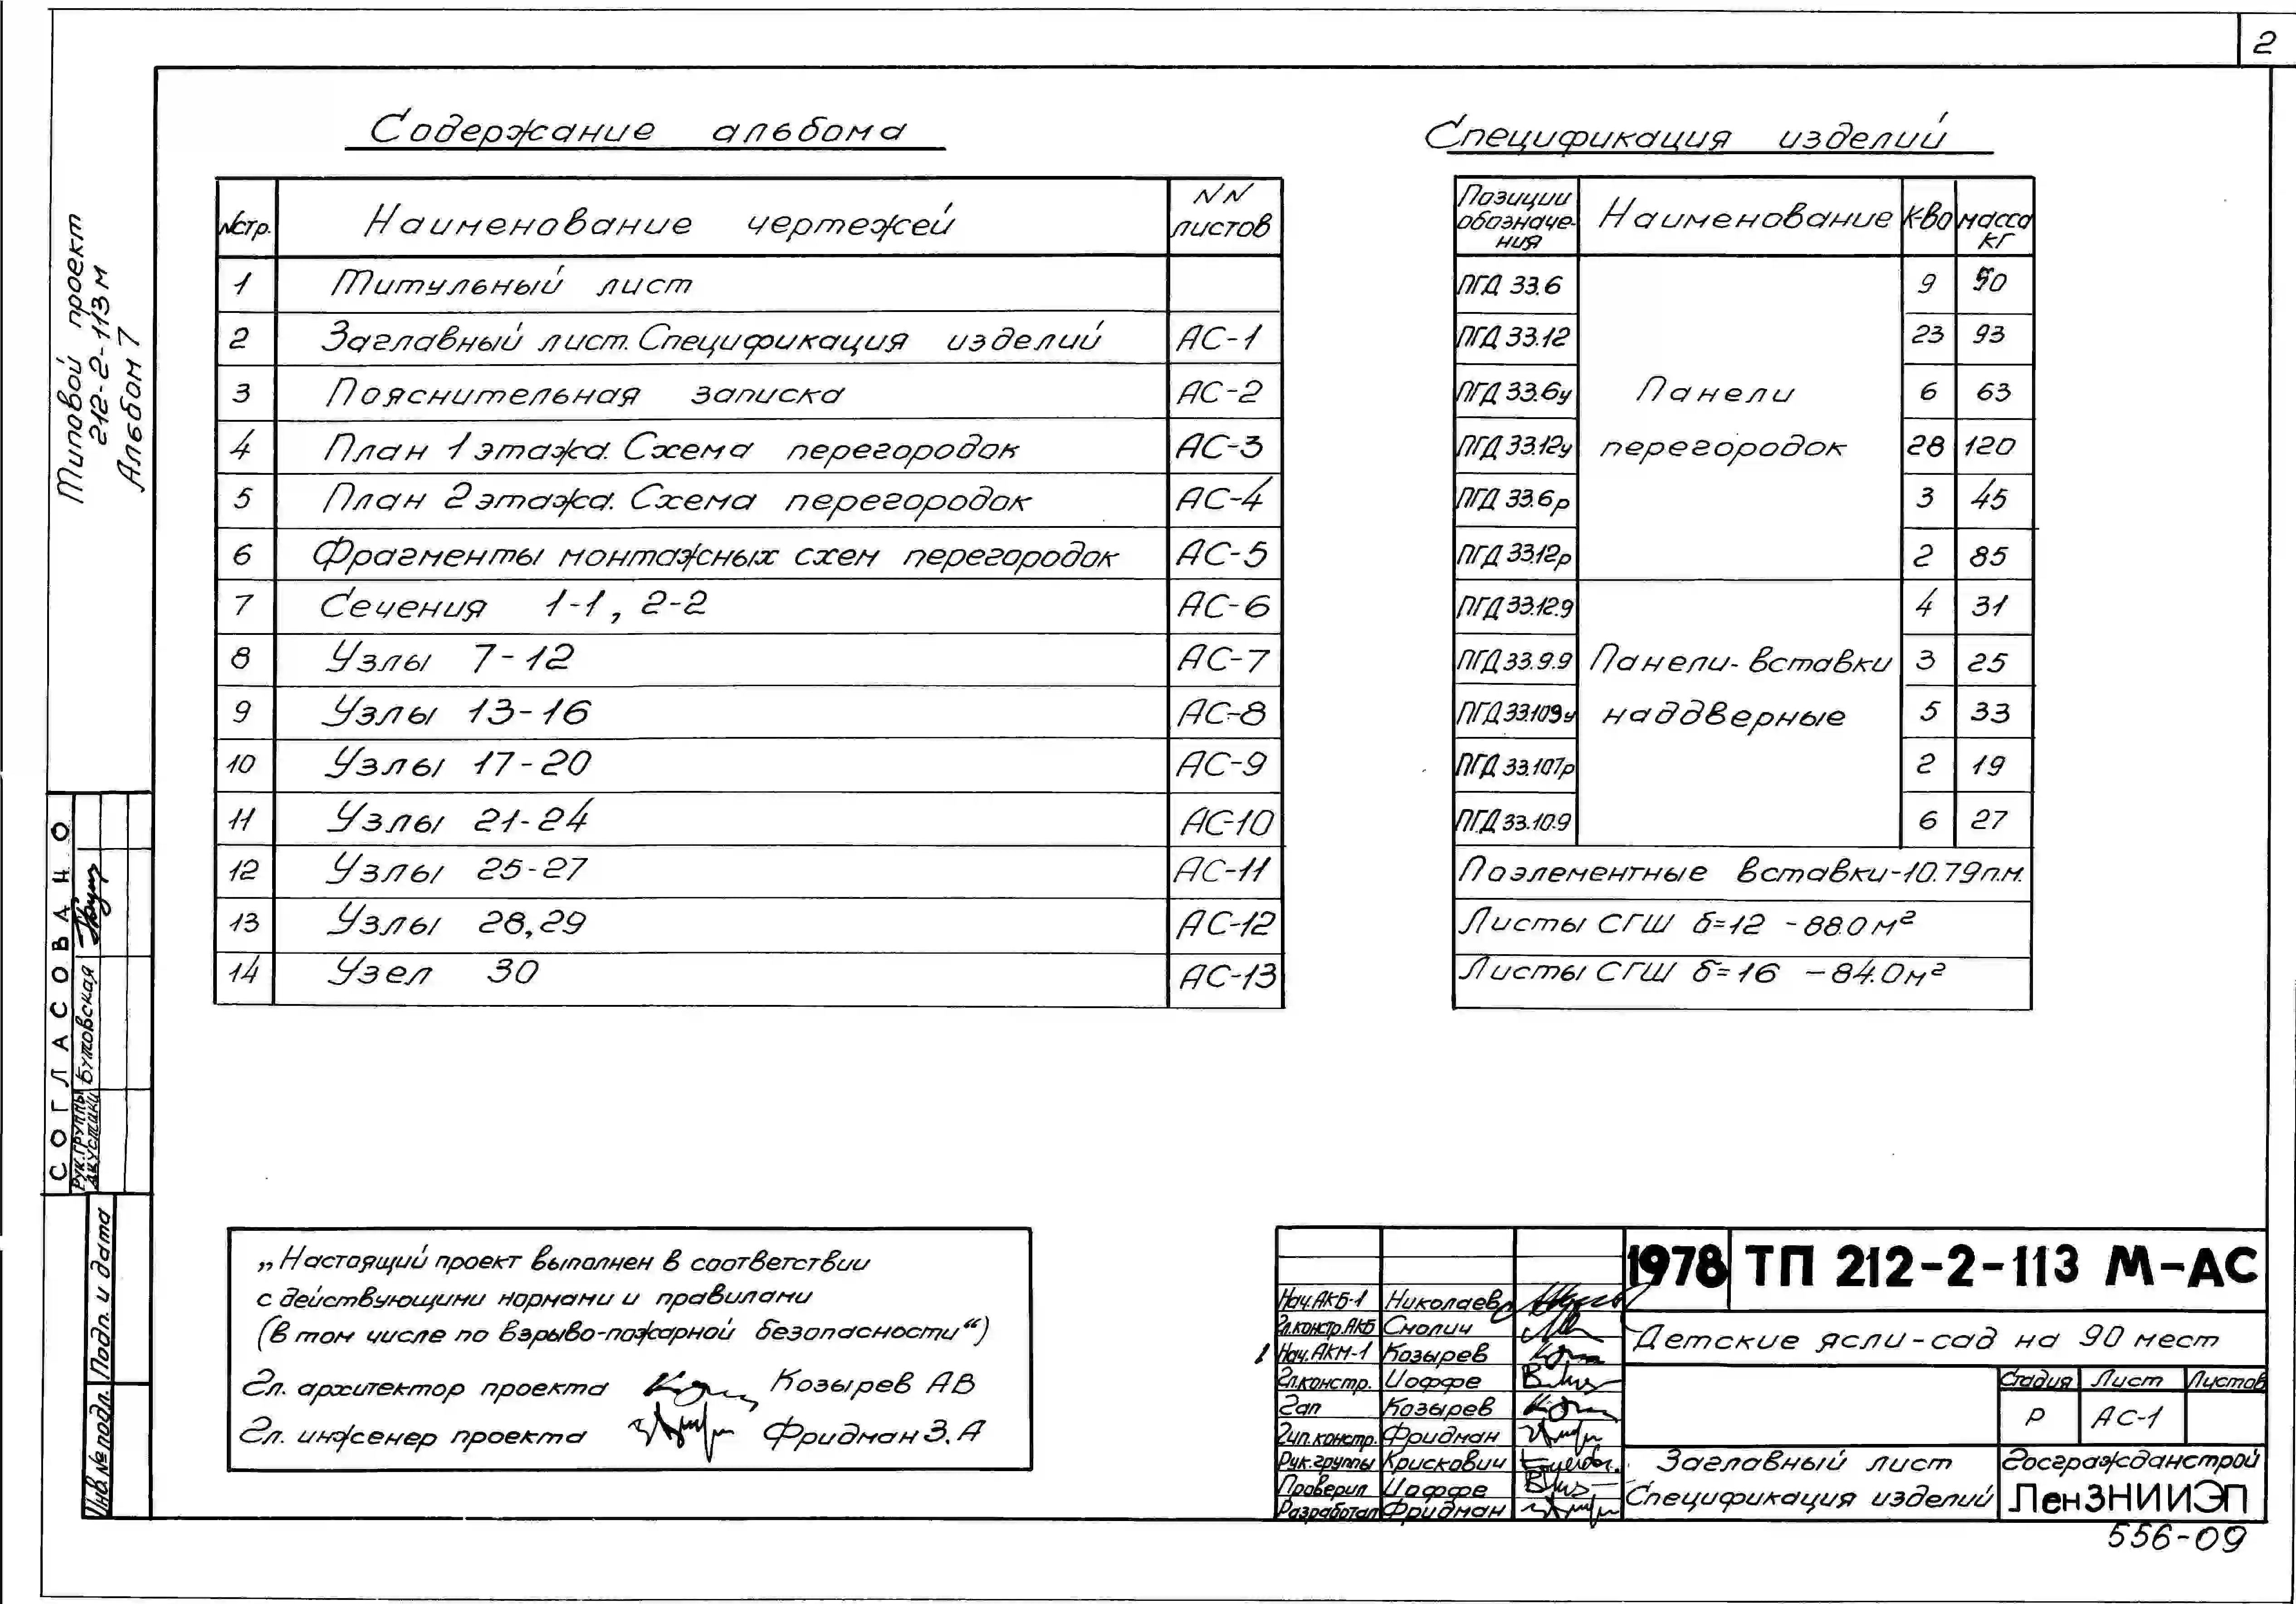 2
Типовой проект
212-2-113м
Альбом 7
Содержание альбома
№стр. Наименование чертежей NN листов
1 Титульный лист
2 Заглавный лист. Спецификация изделий АС-1
3 Пояснительная записка АС-2
4 План 1 этажа. Схема перегородок АС-3
5 План 2 этажа. Схема перегородок АС-4
6 Фрагменты монтажных схем перегородок АС-5
7 Сечения 1-1, 2-2 АС-6
8 Узлы 7-12 АС-7
9 Узлы 13-16 АС-8
10 Узлы 17-20 АС-9
11 Узлы 21-24 АС-10
12 Узлы 25-27 АС-11
13 Узлы 28,29 АС-12
14 Узел 30 АС-13
Спецификация изделий
Позиции обозначе-ния Наименование к-во масса кг
ПГД 33.6 9 50
ПГД 33.12 23 93
ПГД 33.6у Панели 6 63
ПГД 33.12у перегородок 28 120
ПГД 33.6р 3 45
ПГД 33.12р 2 85
ПГД 33.12.9 4 31
ПГД 33.9.9 Панели-вставки 3 25
ПГД 33.109у наддверные 5 33
ПГД 33.107р 2 19
ПГД 33.10.9 6 27
Поэлементные вставки-10.79п.м.
Листы СГШ б=12 - 88.0м²
Листы СГШ б=16 - 84.0м²
СОГЛАСОВАНО
Рук.группы акустики Бутовская
Подп. и дата
Инв.№ подл.
„Настоящий проект выполнен в соответствии
с действующими нормами и правилами
(в том числе по взрыво-пожарной безопасности“)
Гл. архитектор проекта Козырев АВ
Гл. инженер проекта Фридман З.А
1978 ТП 212-2-113 М-АС
Нач.АКБ-1 Николаев
Гл.констр.АКБ Смолич
Нач.АКМ-1 Козырев
Гл.констр. Иоффе
Гап Козырев
Гип.констр. Фридман
Рук.группы Крискович
Проверил Иоффе
Разработал Фридман
Детские ясли-сад на 90 мест
Стадия Лист Листов
Р АС-1
Заглавный лист
Спецификация изделий
Госгражданстрой
ЛенЗНИИЭП
556-09